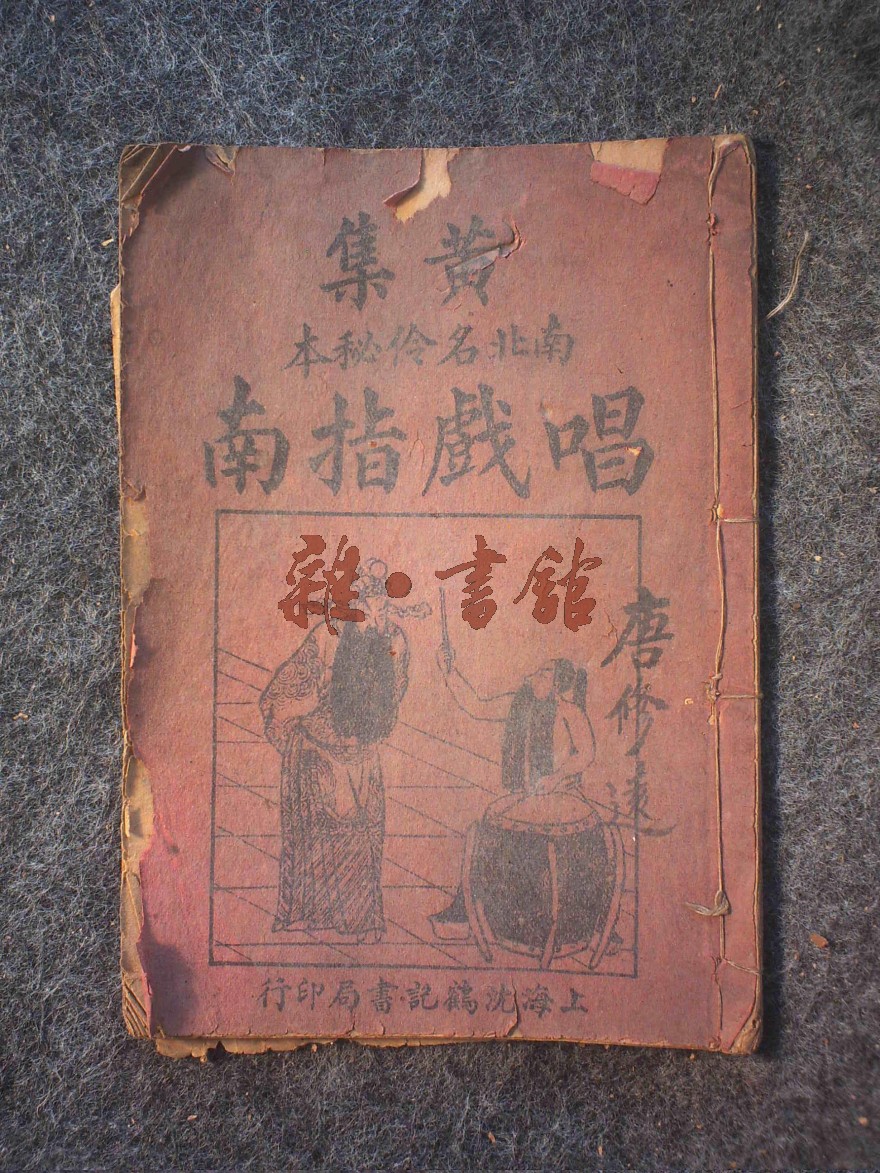 黃集
南北名伶秘本
唱戲指南
雜·書館
唐修遠
上海沈鶴記書局印行